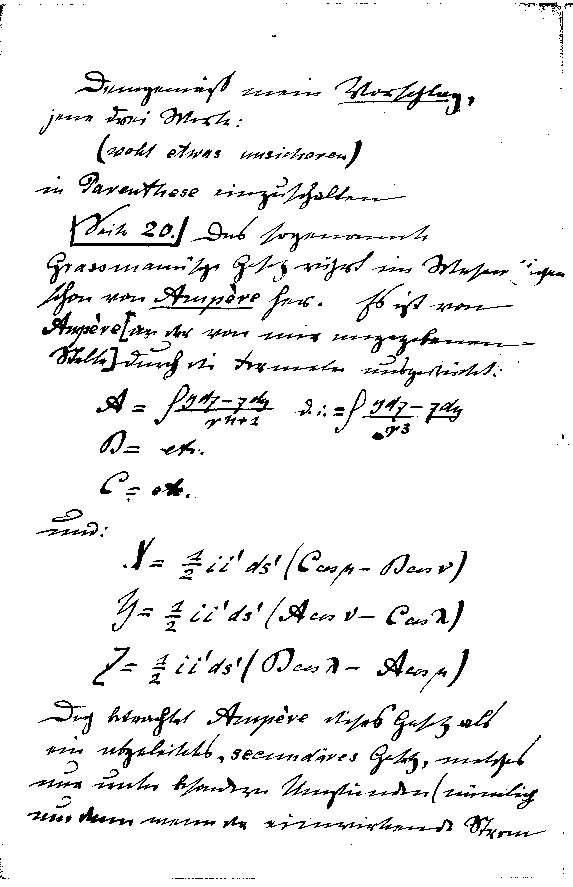 Demgemäß mein Vorschlag,
jene drei Worte:
(wohl etwas unsicheren)
in Parenthese einzuschalten
[Seite 20.] Das sogenannte
Grassmann'sche Gesetz rührt im Wesentlichen
schon von Ampère her. Es ist von
Ampère [an der von mir angegebenen
Stelle] durch die Formeln ausgedrückt:
A = ∫ (ydz − zdy)/r^(n+1) d. i. = ∫ (ydz − zdy)/r^3
B = etc.
C = etc.
und:
X = 1/2 ii' ds' (C cos μ − B cos ν)
Y = 1/2 ii' ds' (A cos ν − C cos λ)
Z = 1/2 ii' ds' (B cos λ − A cos μ)
betrachtet Ampère dieses Gesetz als
ein abgeleitetes, secundäres Gesetz, welches
nur unter besondern Umständen (nämlich
nur dann wenn der einwirkende Strom